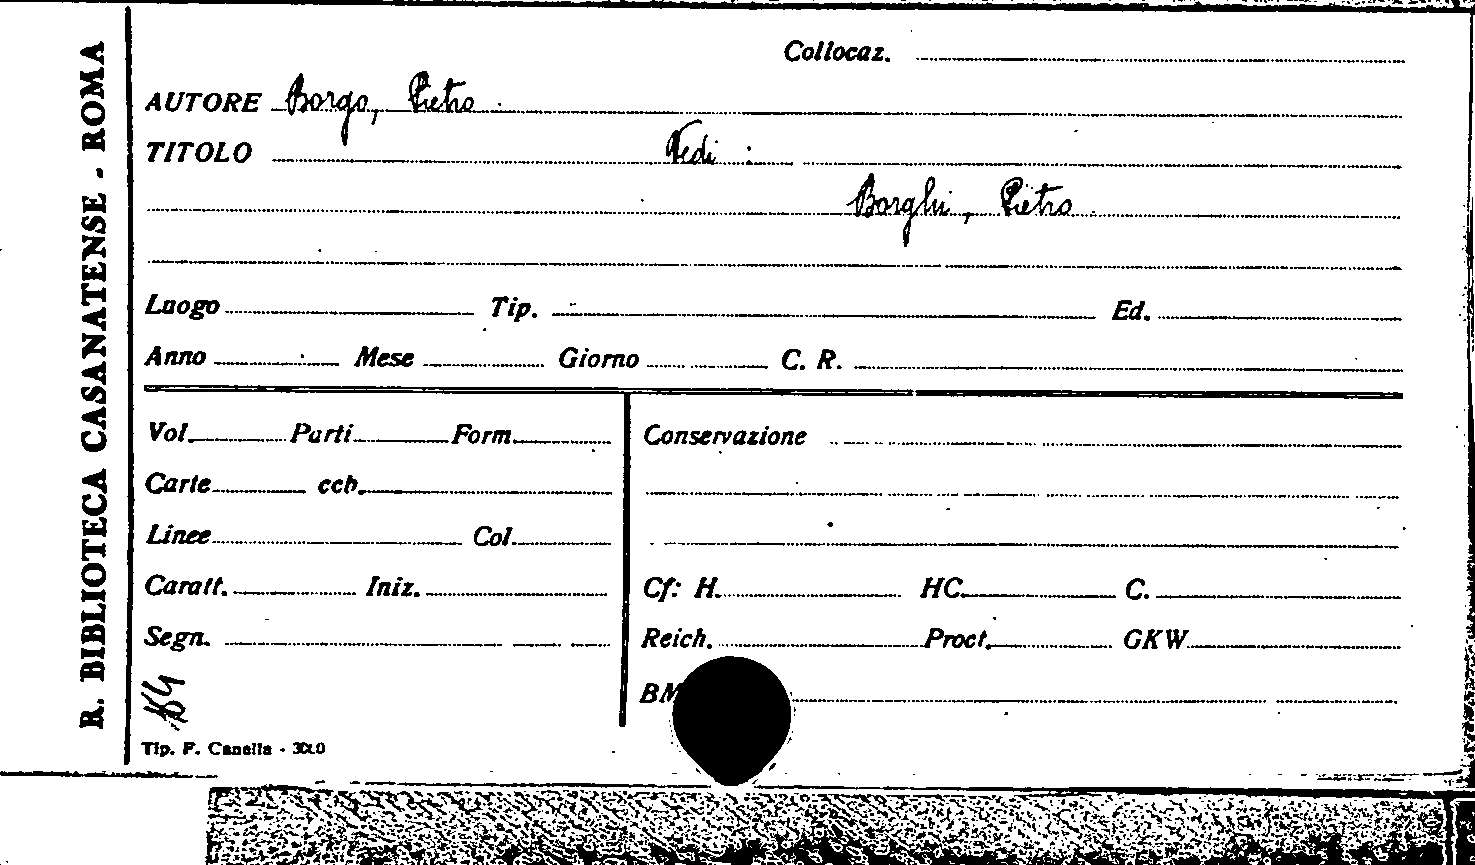 R. BIBLIOTECA CASANATENSE - ROMA
Collocaz.
AUTORE Borgo, Pietro
TITOLO Vedi :
Borghi, Pietro
Luogo Tip. Ed.
Anno Mese Giorno C. R.
Vol. Parti Form.
Conservazione
Carte ccb.
Linee Col.
Caratt. Iniz.
Cf: H. HC. C.
Segn.
Reich. Proct. GKW
BM
Tip. F. Canella -